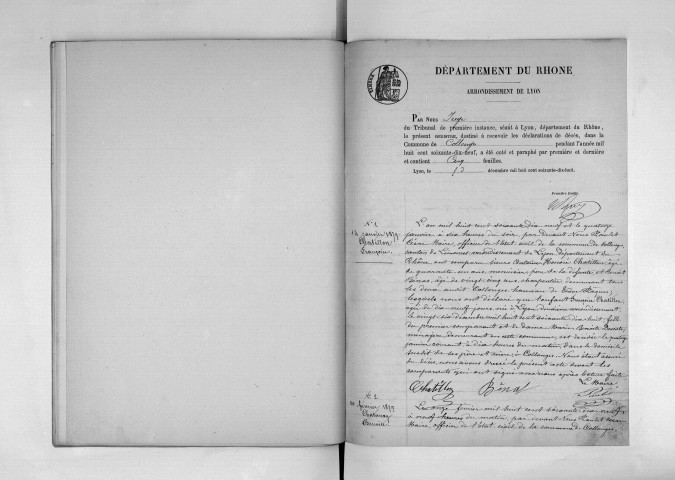 DÉPARTEMENT DU RHONE
ARRONDISSEMENT DE LYON
PAR NOUS Juge
du Tribunal de première instance, séant à Lyon, département du Rhône,
le présent REGISTRE, destiné à recevoir les déclarations de décès, dans la
Commune de Collonges pendant l'année mil
huit cent soixante-dix-neuf, a été coté et paraphé par première et dernière
et contient Cinq feuilles.
Lyon, le décembre mil huit cent soixante-dix-huit.
Première feuille
N° 1
14 janvier 1879
Chatillon
Françoise
L'an mil huit cent soixante dix neuf et le quatorze
janvier à six heures du soir par devant Nous
Maire, officier de l'état civil de la commune de Collonges
canton de Limonest arrondissement de Lyon département du
Rhône ont comparu sieurs Antoine Chatillon âgé
de quarante un ans, père de la défunte et Benoit
Binat, âgé de vingt cinq ans, charpentier demeurant tous
les deux audit Collonges hameau de
lesquels nous ont déclaré que l'enfant Chatillon
âgé de dix neuf jours, né à Lyon arrondissement
le vingt six décembre mil huit cent soixante dix huit, fille
du premier comparant et de dame Marie
ménagère demeurant en cette commune, est décédée le quatorze
janvier courant à dix heures du matin, dans le domicile
susdit de ses père et mère à Collonges. Nous étant assuré
du décès, nous avons dressé le présent acte devant les
comparants qui ont signé avec nous après lecture faite
Le Maire
Chatillon Binat
N° 2
février 1879
Le onze février mil huit cent soixante dix neuf
à neuf heures du matin, par devant Nous
Maire, officier de l'Etat civil de la commune de Collonges